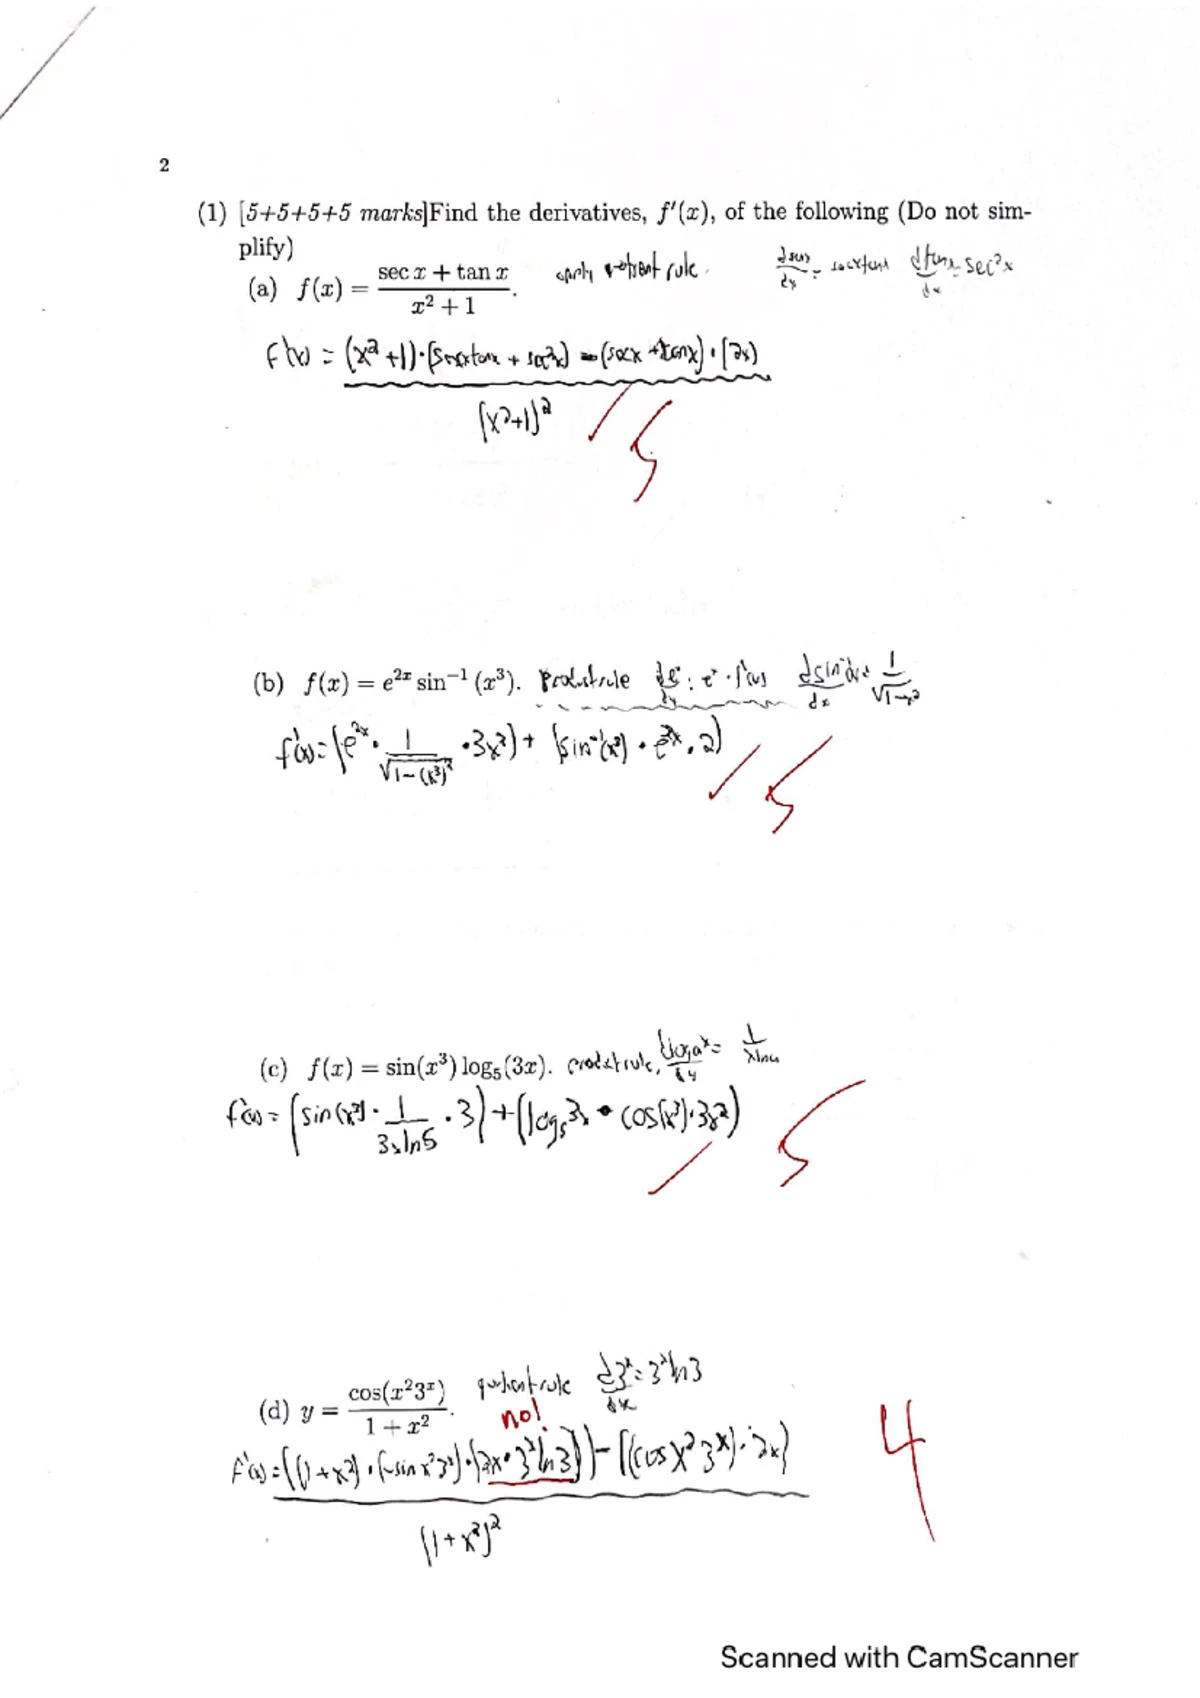 2
(1) [5+5+5+5 marks]Find the derivatives, f'(x), of the following (Do not sim-
plify)
(a) f(x) = (sec x + tan x)/(x² + 1).
rule. dsecx/dx = secxtanx dtanx/dx = sec²x
f'(x) = ((x²+1)·(secxtanx + sec²x) - (secx + tanx)·(2x))/(x²+1)²
5
(b) f(x) = e²ˣ sin⁻¹ (x³). Product rule
f'(x) = (e²ˣ · 1/√(1-(x³)²) · 3x²) + (sin⁻¹(x³) · e²ˣ · 2)
5
(c) f(x) = sin(x³) log₅(3x). product rule, 1/xlna
f'(x) = (sin(x³) · 1/(3xln5) · 3) + (log₅3x · cos(x³)·3x²)
5
(d) y = cos(x²3ˣ)/(1 + x²). quotient rule d3ˣ/dx = 3ˣln3
no!
f'(x) = (((1+x²)·(-sin x²3ˣ)·(2x·3ˣln3)) - ((cos x²3ˣ)·2x))/(1+x²)²
4
Scanned with CamScanner